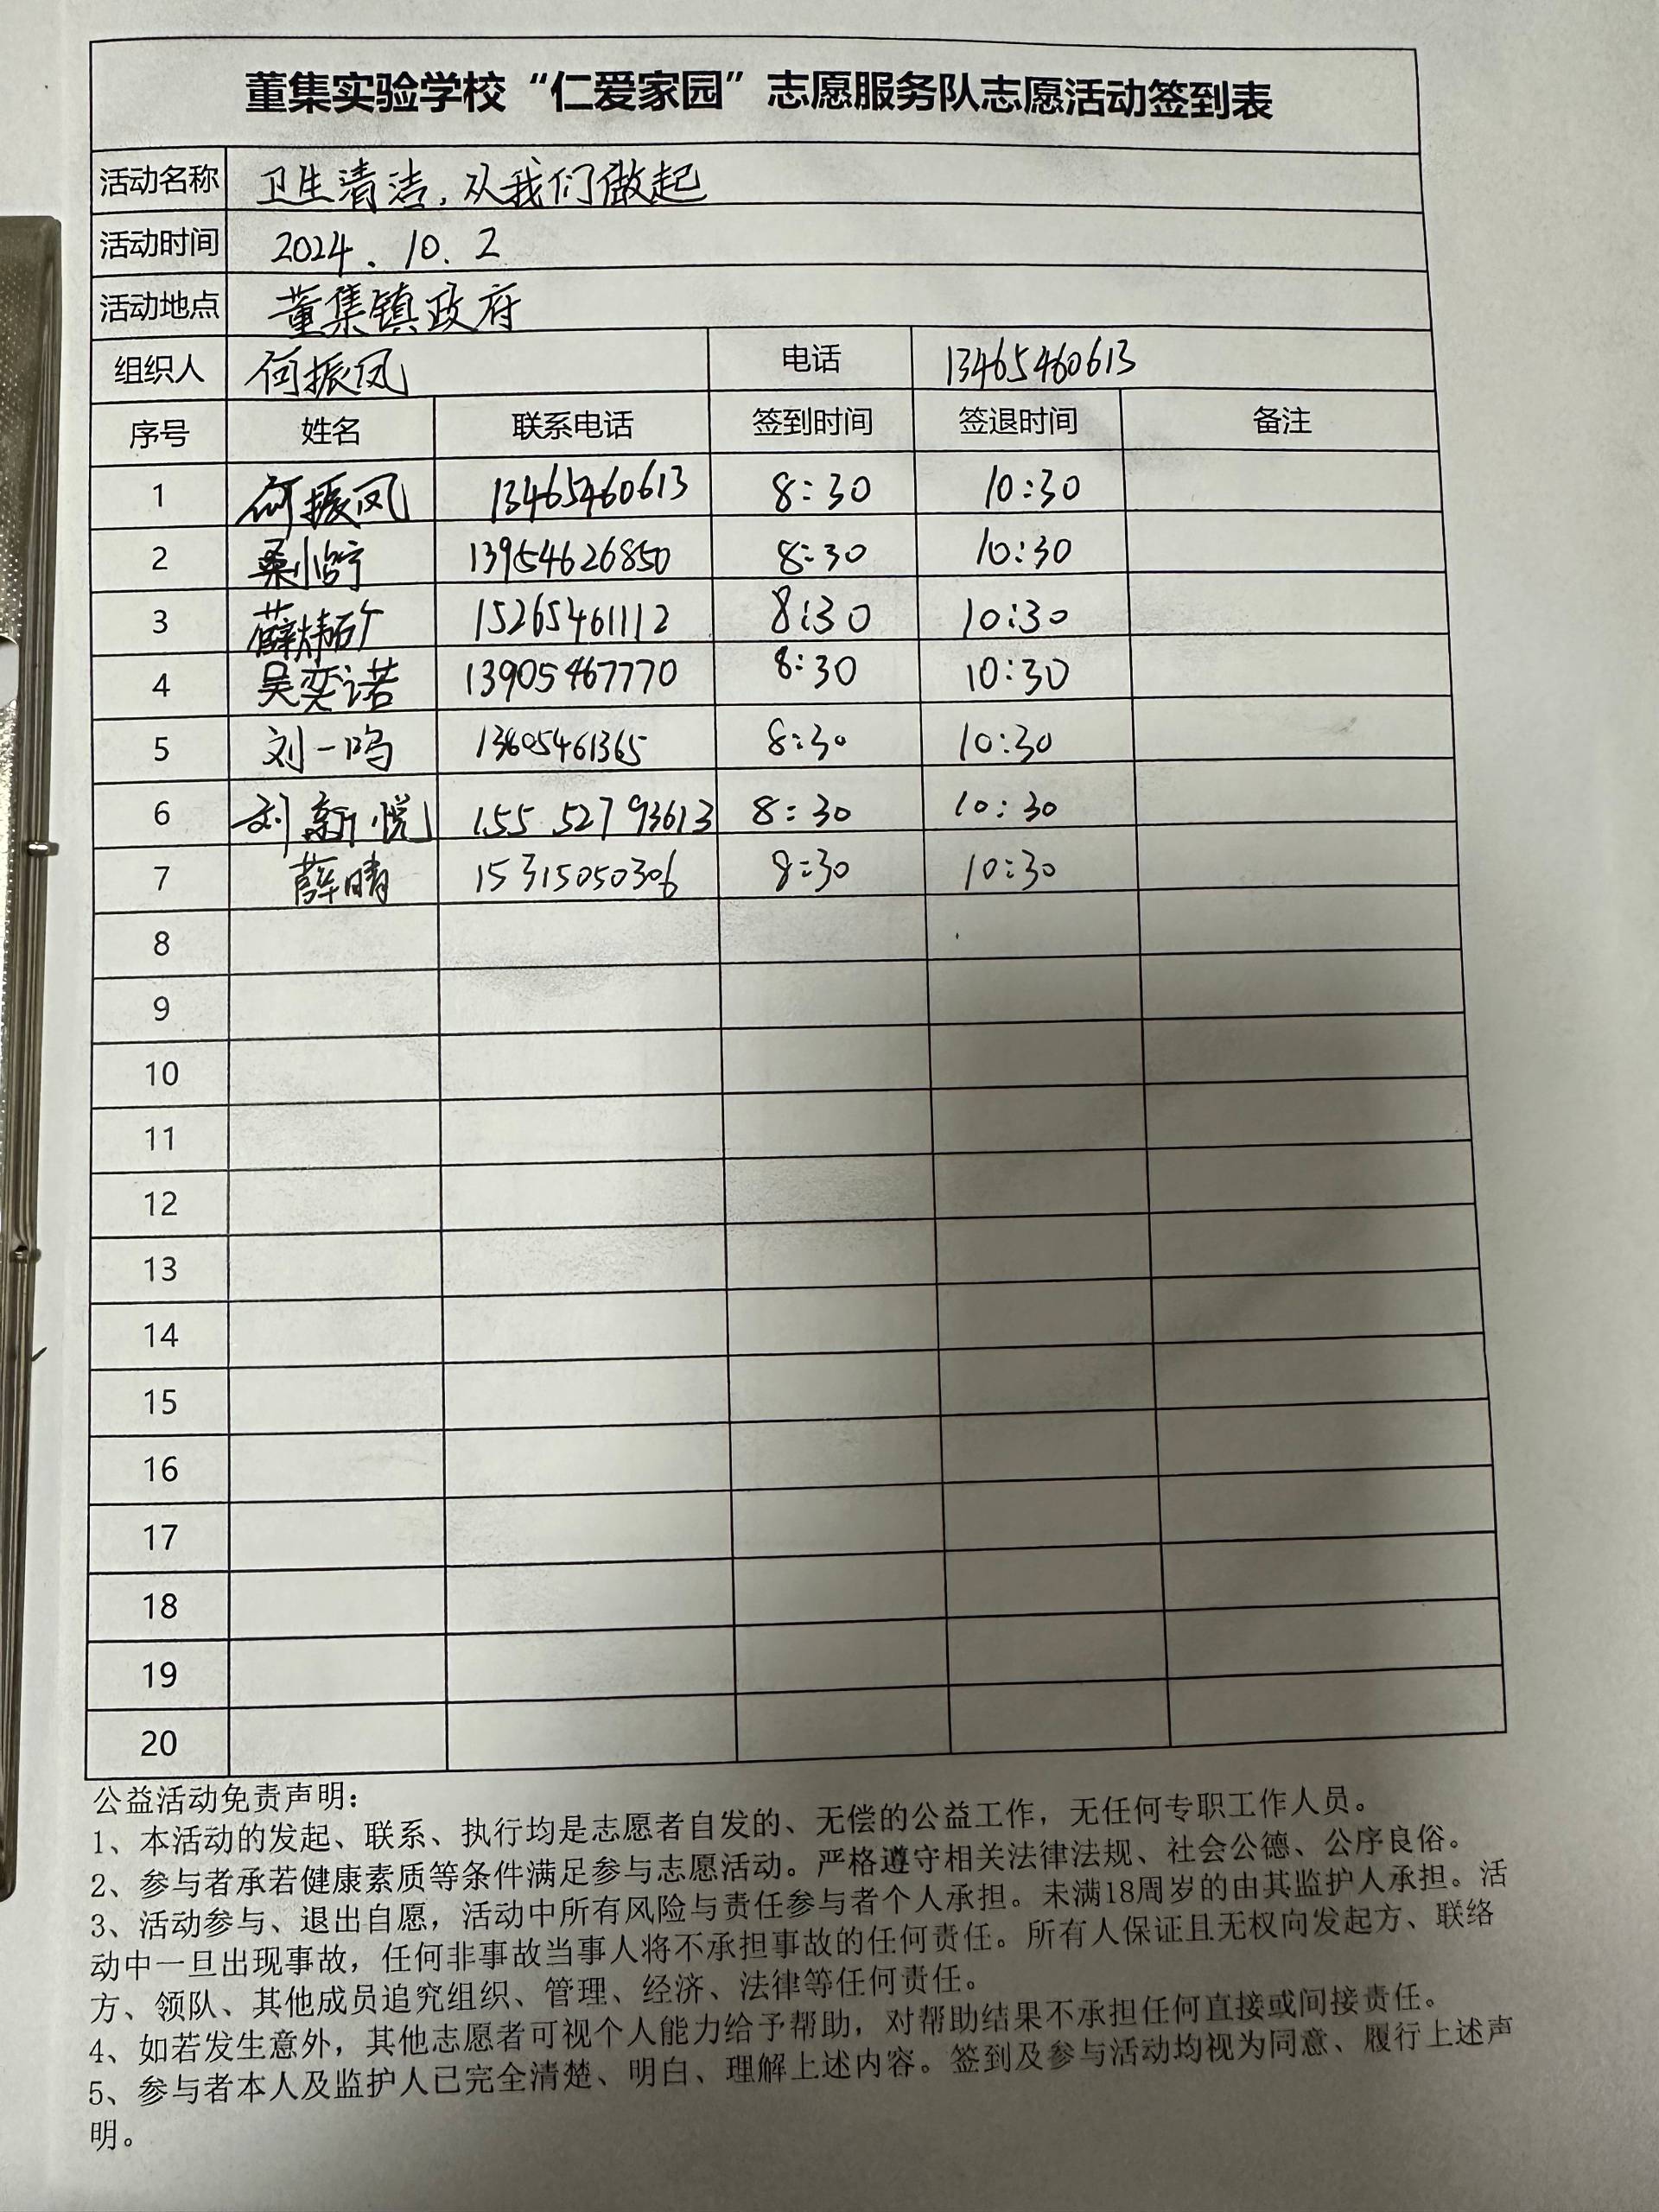 董集实验学校“仁爱家园”志愿服务队志愿活动签到表
活动名称 卫生清洁,从我们做起
活动时间 2024.10.2
活动地点 董集镇政府
组织人 何振凤 电话 13465460613
序号 姓名 联系电话 签到时间 签退时间 备注
1 何振凤 13465460613 8:30 10:30
2 13954626850 8:30 10:30
3 15265461112 8:30 10:30
4 吴奕诺 13905467770 8:30 10:30
5 刘一鸣 13605461365 8:30 10:30
6 刘新悦 15552793613 8:30 10:30
7 薛晴 15315050306 8:30 10:30
8
9
10
11
12
13
14
15
16
17
18
19
20
公益活动免责声明：
1、本活动的发起、联系、执行均是志愿者自发的、无偿的公益工作，无任何专职工作人员。
2、参与者承若健康素质等条件满足参与志愿活动。严格遵守相关法律法规、社会公德、公序良俗。
3、活动参与、退出自愿，活动中所有风险与责任参与者个人承担。未满18周岁的由其监护人承担。活
动中一旦出现事故，任何非事故当事人将不承担事故的任何责任。所有人保证且无权向发起方、联络
方、领队、其他成员追究组织、管理、经济、法律等任何责任。
4、如若发生意外，其他志愿者可视个人能力给予帮助，对帮助结果不承担任何直接或间接责任。
5、参与者本人及监护人已完全清楚、明白、理解上述内容。签到及参与活动均视为同意、履行上述声
明。